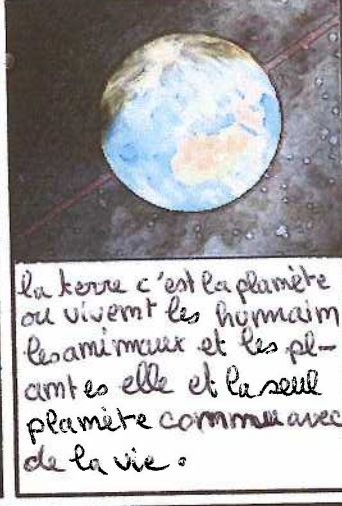 la terre c'est la planète
ou vivent les humain
les animaux et les pl-
antes elle et la seul
planète connue avec
de la vie.